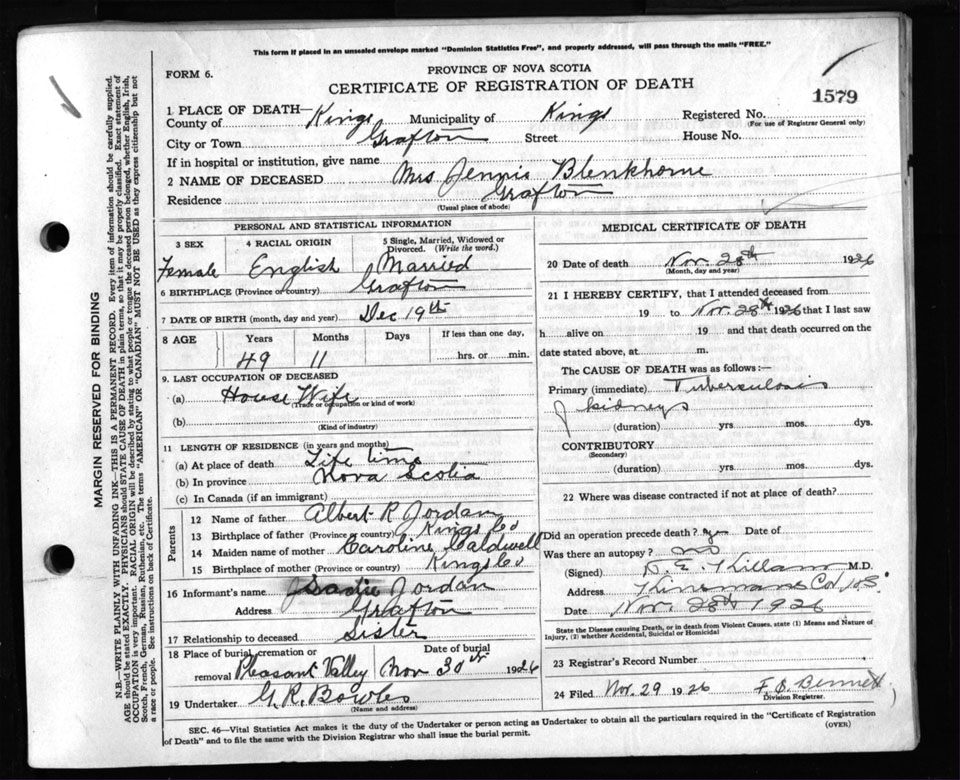 This form if placed in an unsealed envelope marked "Dominion Statistics Free", and properly addressed, will pass through the mails "FREE."
FORM 6.
PROVINCE OF NOVA SCOTIA
CERTIFICATE OF REGISTRATION OF DEATH
1579
1 PLACE OF DEATH—
County of Kings Municipality of Kings Registered No.
(For use of Registrar General only)
City or Town Grafton Street House No.
If in hospital or institution, give name
2 NAME OF DECEASED Mrs Jennie Blenkhorne
Residence Grafton
(Usual place of abode)
PERSONAL AND STATISTICAL INFORMATION
3 SEX 4 RACIAL ORIGIN 5 Single, Married, Widowed or Divorced. (Write the word.)
Female English Married
6 BIRTHPLACE (Province or country) Grafton
7 DATE OF BIRTH (month, day and year) Dec 19th
8 AGE Years Months Days If less than one day,
49 11 hrs. or min.
9. LAST OCCUPATION OF DECEASED
(a) House Wife
(Trade or occupation or kind of work)
(b)
(Kind of industry)
11 LENGTH OF RESIDENCE (in years and months)
(a) At place of death Life time
(b) In province Nova Scotia
(c) In Canada (if an immigrant)
Parents
12 Name of father Albert R Jordan
13 Birthplace of father (Province or country) Kings Co
14 Maiden name of mother Caroline Caldwell
15 Birthplace of mother (Province or country) Kings Co
16 Informant's name Sadie Jordan
Address Grafton
17 Relationship to deceased Sister
18 Place of burial, cremation or removal Pleasant Valley
Date of burial Nov 30th 1926
19 Undertaker G. R. Bowles
(Name and address)
MEDICAL CERTIFICATE OF DEATH
20 Date of death Nov. 28th 1926
(Month, day and year)
21 I HEREBY CERTIFY, that I attended deceased from
19 to Nov. 28th 1926 that I last saw
h alive on 19 and that death occurred on the
date stated above, at m.
The CAUSE OF DEATH was as follows:—
Primary (immediate) Tuberculosis
of kidneys
(duration) yrs. mos. dys.
CONTRIBUTORY
(Secondary)
(duration) yrs. mos. dys.
22 Where was disease contracted if not at place of death?
Did an operation precede death? yes Date of
Was there an autopsy? no
(Signed) Killam M.D.
Address
Date Nov. 28th 1926
State the Disease causing Death, or in death from Violent Causes, state (1) Means and Nature of Injury, (2) whether Accidental, Suicidal or Homicidal
23 Registrar's Record Number
24 Filed Nov. 29 1926 Bennett
Division Registrar.
SEC. 46—Vital Statistics Act makes it the duty of the Undertaker or person acting as Undertaker to obtain all the particulars required in the "Certificate of Registration
of Death" and to file the same with the Division Registrar who shall issue the burial permit.
(OVER)
MARGIN RESERVED FOR BINDING
N.B.—WRITE PLAINLY WITH UNFADING INK—THIS IS A PERMANENT RECORD. Every item of information should be carefully supplied.
AGE should be stated EXACTLY. PHYSICIANS should STATE CAUSE OF DEATH in plain terms, so that it may be properly classified. Exact statement of
OCCUPATION is very important. RACIAL ORIGIN will be described by stating to what people or tongue the deceased person belonged, whether English, Irish,
Scotch, French, German, Russian, Ruthenian, etc. The terms "AMERICAN" OR "CANADIAN" MUST NOT BE USED as they express citizenship but not
a race or people. See instructions on back of Certificate.